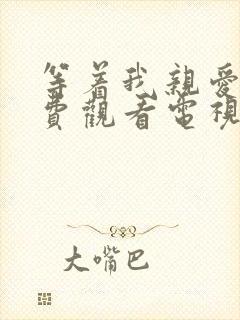 等着我親愛
費觀看電視
大嘴巴